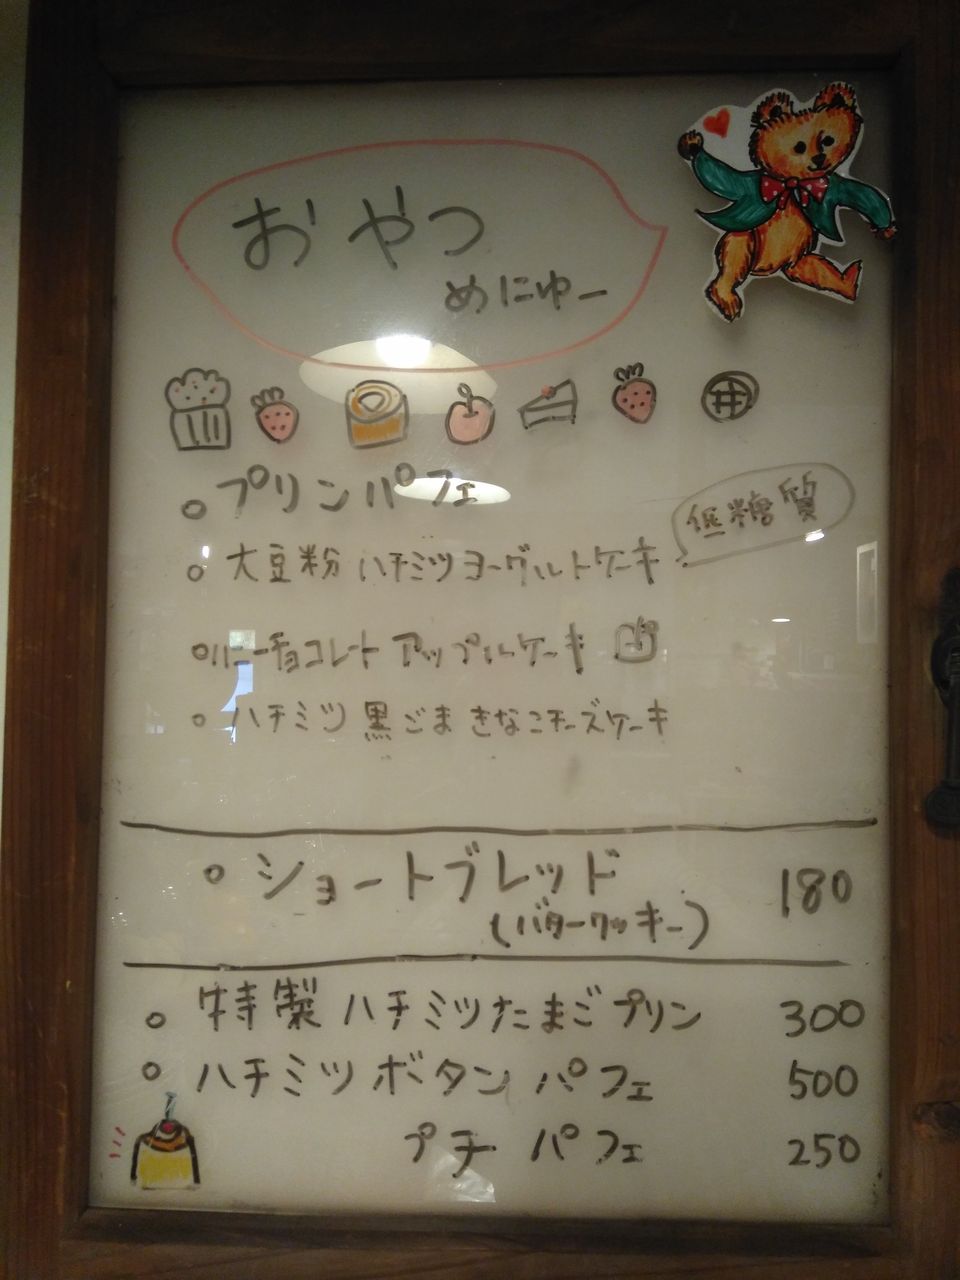 おやつ
めにゅー
○プリンパフェ
低糖質
○大豆粉 ハチミツヨーグルトケーキ
○ハニーチョコレート アップルケーキ
○ハチミツ 黒ごま きなこチーズケーキ
○ショートブレッド 180
(バタークッキー)
○特製 ハチミツたまごプリン 300
○ハチミツ ボタン パフェ 500
プチ パフェ 250